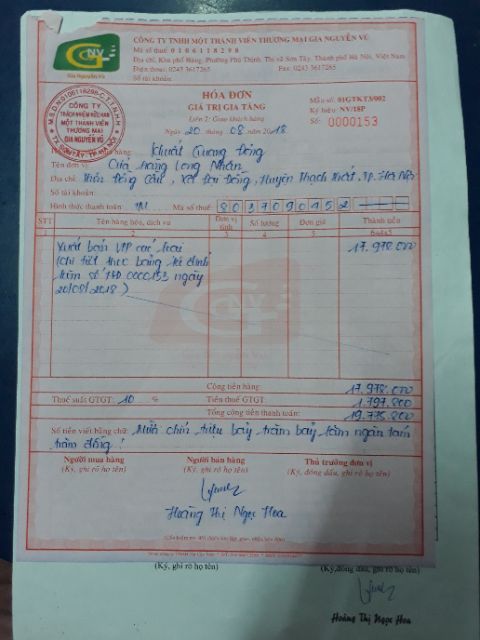 GNV
Gia Nguyên Vũ
CÔNG TY TNHH MỘT THÀNH VIÊN THƯƠNG MẠI GIA NGUYÊN VŨ
Mã số thuế: 0106118298
Địa chỉ, Khu phố Hàng, Phường Phú Thịnh, Thị xã Sơn Tây, Thành phố Hà Nội, Việt Nam
Điện thoại: 0243 3617265 Fax: 0243 3617265
Số tài khoản:
M.S.D.N:0106118298-C.T.T.N.H.H
CÔNG TY
TRÁCH NHIỆM HỮU HẠN
MỘT THÀNH VIÊN
THƯƠNG MẠI
GIA NGUYÊN VŨ
HÓA ĐƠN
GIÁ TRỊ GIA TĂNG
Liên 2: Giao khách hàng
Ngày 20 tháng 08 năm 2018
Mẫu số: 01GTKT3/002
Ký hiệu: NV/18P
Số: 0000153
mua hàng: Khuất Quang Đông
Tên đơn vị: Cửa hàng Long Nhân
Địa chỉ: Thôn Đồng Cầu, Huyện Thạch Thất, TP. Hà Nội
Số tài khoản:
Hình thức thanh toán: TM Mã số thuế: 8037090152
STT Tên hàng hóa, dịch vụ Đơn vị tính Số lượng Đơn giá Thành tiền
1 2 3 4 5 6=4x5
Xuất bán VPP các loại 17.978.000
(chi tiết theo bảng kê đính
kèm số HĐ 0000153 ngày
20/08/2018)
Cộng tiền hàng: 17.978.000
Thuế suất GTGT: 10 % Tiền thuế GTGT: 1.797.800
Tổng cộng tiền thanh toán: 19.775.800
Số tiền viết bằng chữ: Mười chín triệu bảy trăm bảy lăm ngàn tám
trăm đồng!
Người mua hàng Người bán hàng Thủ trưởng đơn vị
(Ký, ghi rõ họ tên) (Ký, ghi rõ họ tên) (Ký, đóng dấu, ghi rõ họ tên)
Hoàng Thị Ngọc Hoa
(Cần kiểm tra, đối chiếu khi lập, giao, nhận hóa đơn)
(Ký, ghi rõ họ tên) (Ký,đóng dấu, ghi rõ họ tên)
Hoàng Thị Ngọc Hoa